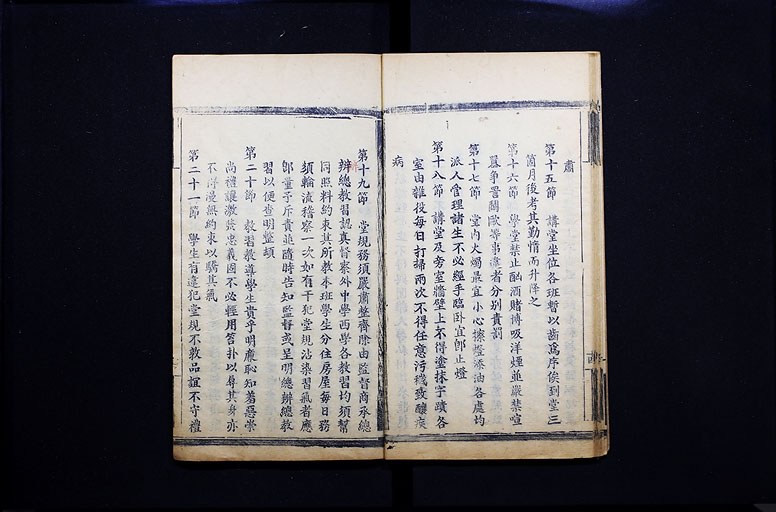 肅
第十五節　講堂坐位各班暫以齒爲序俟到堂三
箇月後考其勤惰而升降之
第十六節　學堂禁止酗酒賭博吸洋煙並嚴禁喧
囂爭詈鬭毆等事違者分別責罰
第十七節　堂內火燭最宜小心擦燈添油各處均
派人管理諸生不必經手臨卧宜卽止燈
第十八節　講堂及旁室牆壁上不得塗抹字蹟各
室由雜役每日打掃兩次不得任意污穢致釀疾
病
第十九節　堂規務須嚴肅整齊除由監督商承總
辦總教習認真督察外中學西學各教習均須幫
同照料約束其所教本班學生分住房屋每日務
須輪流稽察一次如有干犯堂規沾染習氣者應
卽量予斥責並隨時告知監督或呈明總辦總教
習以便查明整頓
第二十節　教習教導學生貴乎明廉恥知羞惡崇
尚禮讓激發忠義固不必輕用笞扑以辱其身亦
不得漫無約束以驕其氣
第二十一節　學生有違犯堂規不敦品誼不守禮